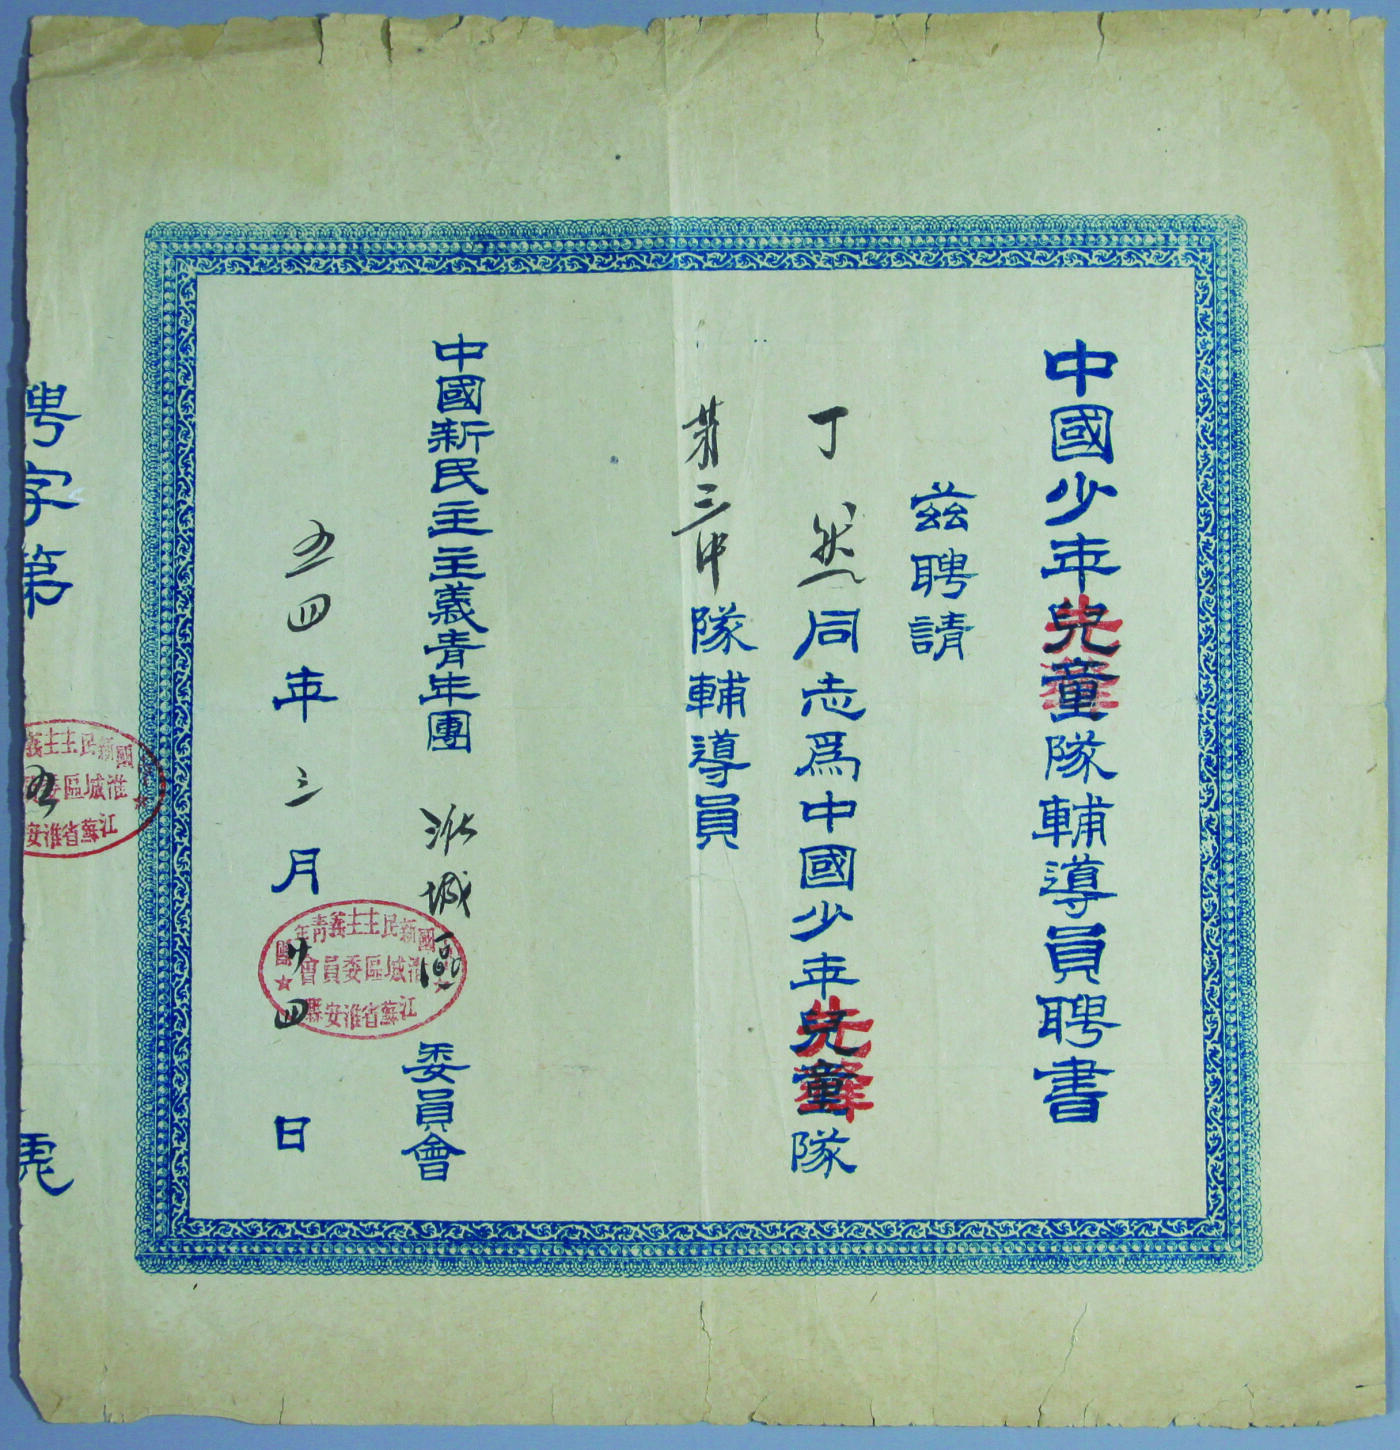 中國少年兒童隊輔導員聘書
先鋒
茲聘請
丁然同志爲中國少年兒童隊
先鋒
第三中隊輔導員
中國新民主主義青年團淮城區委員會
五四年三月廿四日
國新民主主義青年團
淮城區委員會
江蘇省淮安縣
聘字第五號
國新民主主義
淮城區委
江蘇省淮安